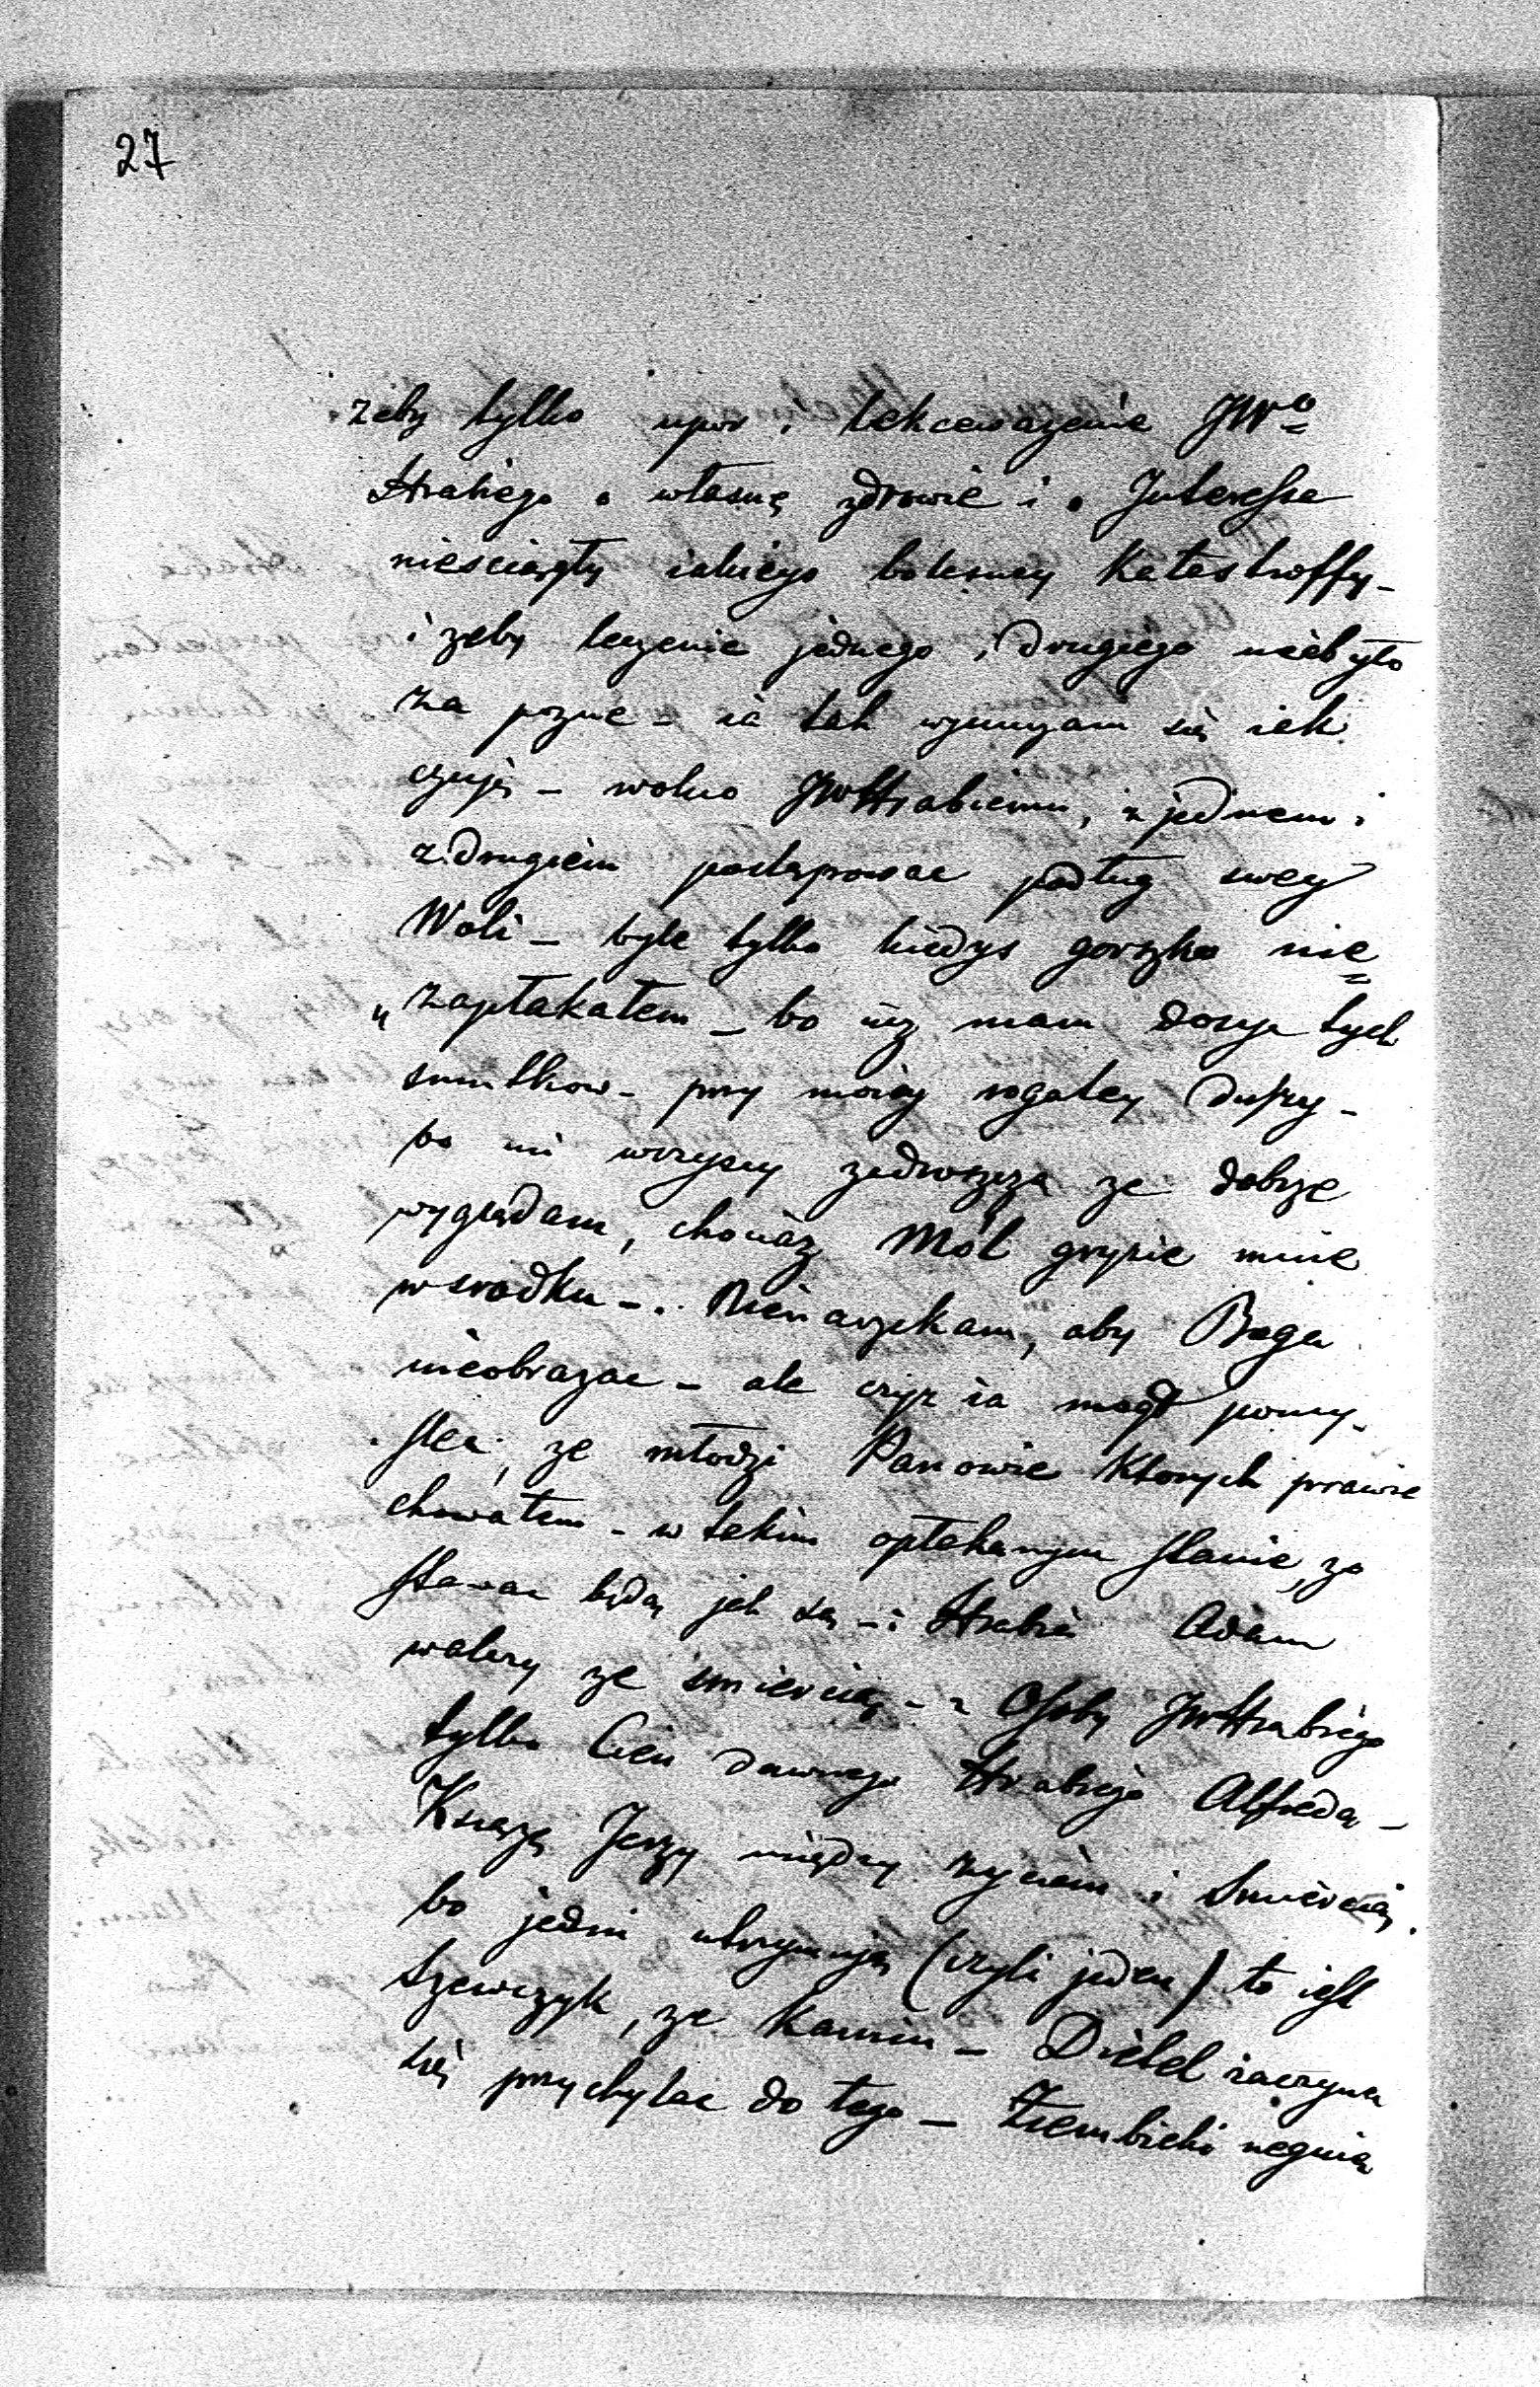 27
zeby tylko upor i lekcewazenie JWo
Hrabiego o własnę zdrowie i o Interessa
niesciągły iakieys bolesney Katastroffy -
i zeby leczenie jednego i drugiego niebyło
za pozne - ia tak wynurzam się iak
czuję - wolno JWHrabiemu, z jednem i
z drugiem postępowac podług swey
Woli - byle tylko kiedys gorzko nie=
„zapłakałem - bo iuz mam dosyc tych
smutkow - przy moiey rogatey duszy -
bo mi wszyscy zadroszczą ze dobrze
wyglądam, chociaz Mól gryzie mnie
w srodku -. Nienarzekam, aby Boga
nieobrazac - ale czyz ia mogł pomy-
slec, ze młodzi Panowie Ktorych prawie
chowałem - w takim opłakanym stanie, zo
stawac będą jak są - : Hrabia Adam
walczy ze smiercią - z Osoby JWHrabiego
tylko Cien dawnego Hrabiego Alfreda -
Xsiąze Jerzy między zyciem i Smiercią.
bo jedni utrzymują (czyli jeden) to iest
Szewczyk, ze Kamien - Dietel zaczyna
się przychylac do tego - Ziembicki neguie